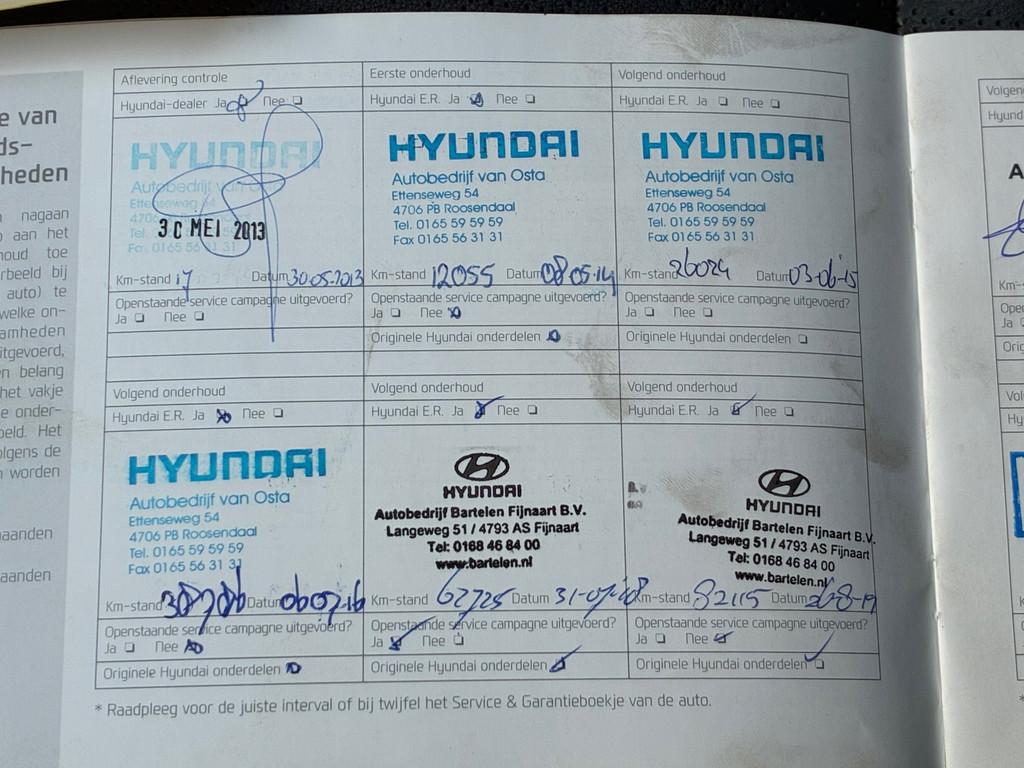 e van
ds-
heden
n nagaan
o aan het
houd toe
rbeeld bij
auto) te
welke on-
amheden
itgevoerd,
en belang
het vakje
e onder-
beeld. Het
olgens de
n worden
aanden
aanden
Aflevering controle
Hyundai-dealer Ja Nee
HYUNDAI
Autobedrijf van Osta
Ettenseweg 54
4706
Tel. 0165
Fax 0165 56 31 31
30 MEI 2013
Km-stand 17 Datum 30.05.2013
Openstaande service campagne uitgevoerd?
Ja Nee
Eerste onderhoud
Hyundai E.R. Ja Nee
HYUNDAI
Autobedrijf van Osta
Ettenseweg 54
4706 PB Roosendaal
Tel. 0165 59 59 59
Fax 0165 56 31 31
Km-stand 12055 Datum 08.05.14
Openstaande service campagne uitgevoerd?
Ja Nee
Originele Hyundai onderdelen
Volgend onderhoud
Hyundai E.R. Ja Nee
HYUNDAI
Autobedrijf van Osta
Ettenseweg 54
4706 PB Roosendaal
Tel. 0165 59 59 59
Fax 0165 56 31 31
Km-stand 26024 Datum 03-06-15
Openstaande service campagne uitgevoerd?
Ja Nee
Originele Hyundai onderdelen
Volgend onderhoud
Hyundai E.R. Ja Nee
HYUNDAI
Autobedrijf van Osta
Ettenseweg 54
4706 PB Roosendaal
Tel. 0165 59 59 59
Fax 0165 56 31 31
Km-stand Datum 060716
Openstaande service campagne uitgevoerd?
Ja Nee
Originele Hyundai onderdelen
Volgend onderhoud
Hyundai E.R. Ja Nee
HYUNDAI
Autobedrijf Bartelen Fijnaart B.V.
Langeweg 51 / 4793 AS Fijnaart
Tel: 0168 46 84 00
www.bartelen.nl
Km-stand 62725 Datum 31-07-18
Openstaande service campagne uitgevoerd?
Ja Nee
Originele Hyundai onderdelen
Volgend onderhoud
Hyundai E.R. Ja Nee
HYUNDAI
Autobedrijf Bartelen Fijnaart B.V.
Langeweg 51 / 4793 AS Fijnaart
Tel: 0168 46 84 00
www.bartelen.nl
Km-stand 82115 Datum 26-8-19
Openstaande service campagne uitgevoerd?
Ja Nee
Originele Hyundai onderdelen
* Raadpleeg voor de juiste interval of bij twijfel het Service & Garantieboekje van de auto.
Volgen
Hyund
A
Km-
Open
Ja
Orig
Vol
Hy